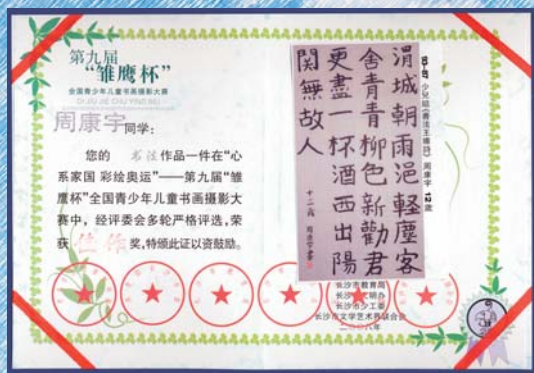 第九届
“雏鹰杯”
全国青少年儿童书画摄影大赛
DI JIU JIE CHU YING BEI
周康宇同学：
您的 书法作品一件在“心
系家国 彩绘奥运”——第九届“雏
鹰杯”全国青少年儿童书画摄影大
赛中，经评委会多轮严格评选，荣
获 佳作 奖，特颁此证以资鼓励。
少儿组《书法王维诗》 周康宇 12岁
渭城朝雨浥轻塵客
舍青青柳色新勸君
更盡一杯酒西出陽
関無故人
十二歲 周康宇書
长沙市教育局
长沙市文明办
长沙市少工委
长沙市文学艺术界联合会
二〇〇八年